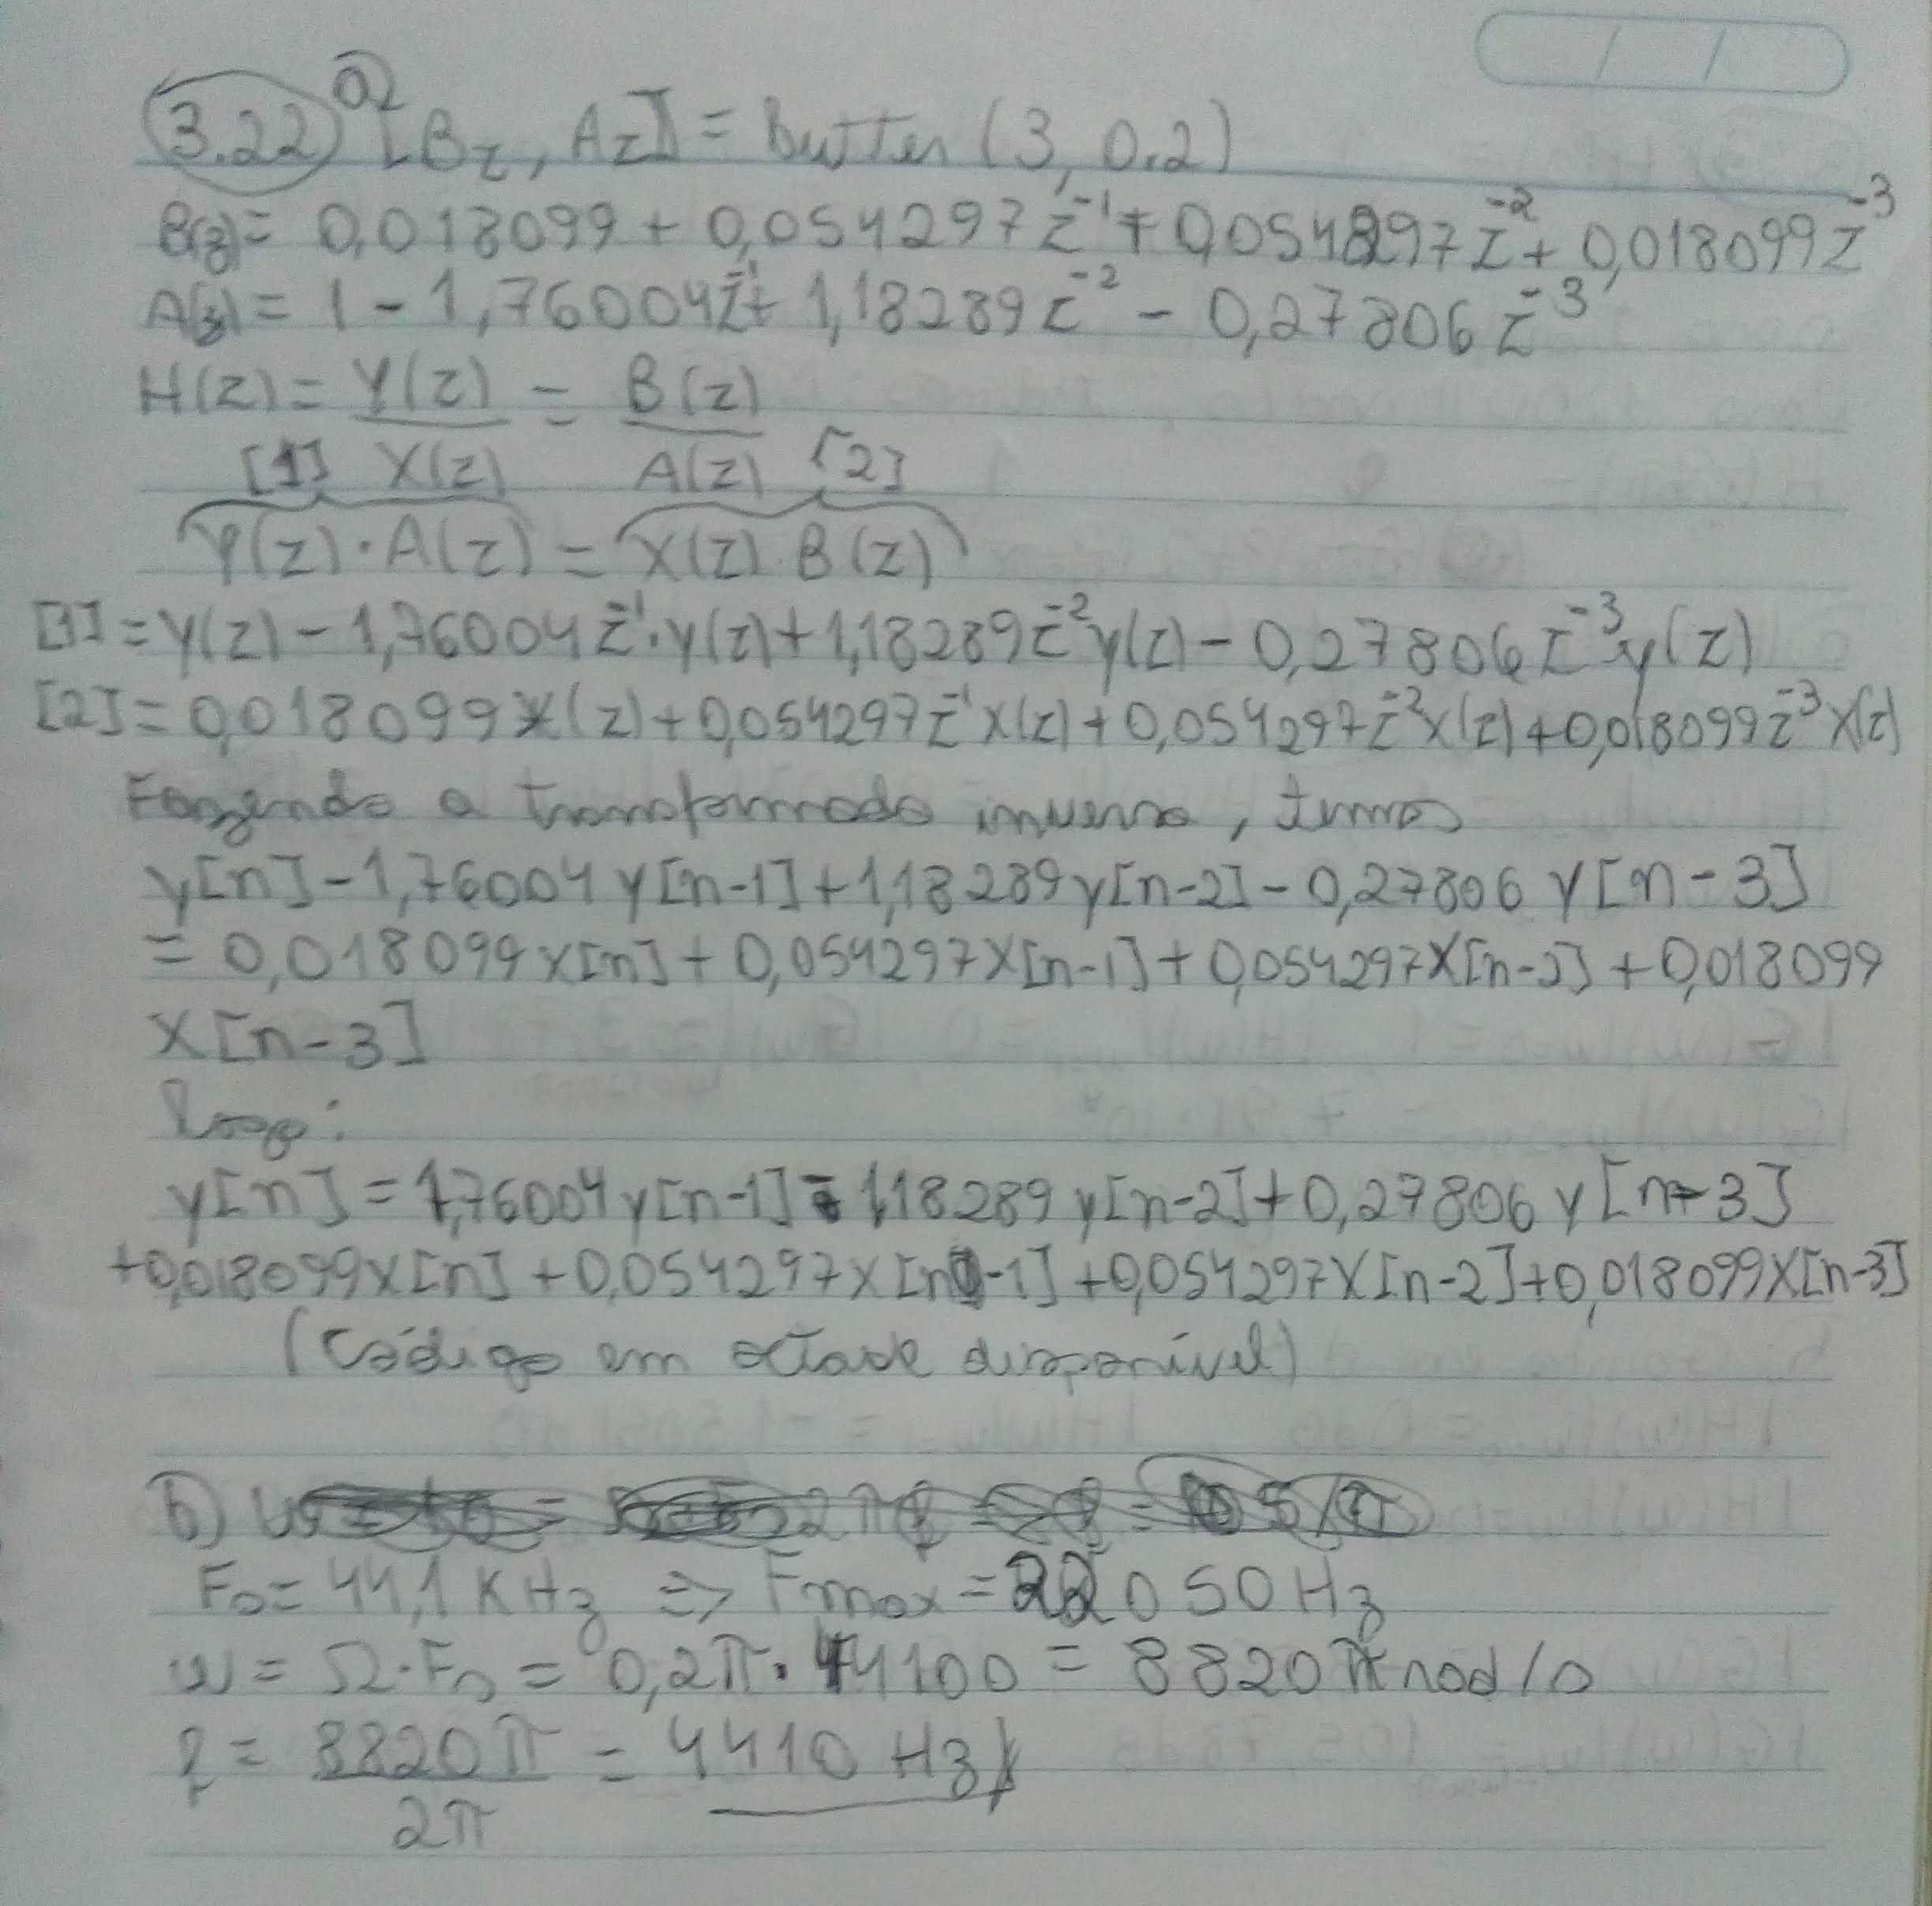 3.22 a) [Bz, Az] = Butter (3, 0.2)
B(z) = 0,018099 + 0,054297 z⁻¹ + 0,054297 z⁻² + 0,018099 z⁻³
A(z) = 1 - 1,76004 z⁻¹ + 1,18289 z⁻² - 0,27806 z⁻³
H(z) = Y(z) = B(z)
[1] X(z) A(z) [2]
Y(z) · A(z) = X(z) · B(z)
[1] = Y(z) - 1,76004 z⁻¹ · y(z) + 1,18289 z⁻² y(z) - 0,27806 z⁻³ y(z)
[2] = 0,018099 X(z) + 0,054297 z⁻¹ X(z) + 0,054297 z⁻² X(z) + 0,018099 z⁻³ X(z)
Fazendo a transformada inversa, temos
y[n] - 1,76004 y[n-1] + 1,18289 y[n-2] - 0,27806 y[n-3]
= 0,018099 x[n] + 0,054297 x[n-1] + 0,054297 x[n-2] + 0,018099
x[n-3]
Logo:
y[n] = 1,76004 y[n-1] - 1,18289 y[n-2] + 0,27806 y[n-3]
+ 0,018099 x[n] + 0,054297 x[n-1] + 0,054297 x[n-2] + 0,018099 x[n-3]
(Código em octave disponível)
b)
Fs = 44,1 KHz => Fmax = 22050 Hz
w = Ω · Fs = 0,2π · 44100 = 8820 π rad/s
f = 8820 π = 4410 Hz
2π